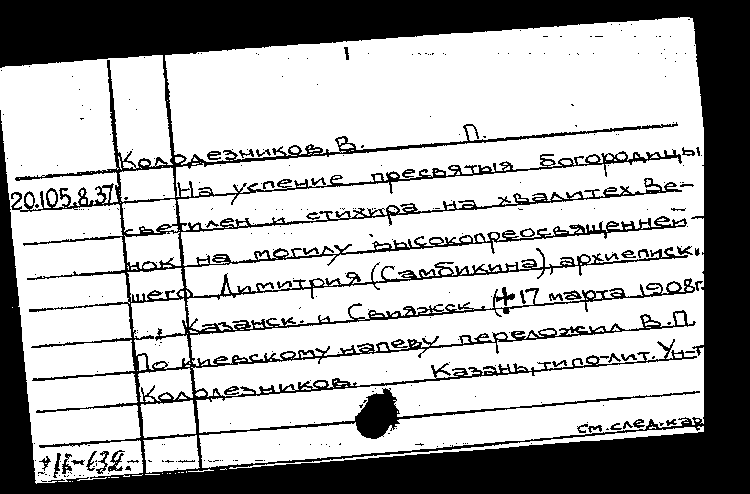 Колодезников, В. П.
20.105.8.371. На успение пресвятыя богородицы
светилен и стихира на хвалитех. Ве-
нок на могилу высокопреосвященней-
шего Димитрия (Самбикина), архиеписк.
Казанск. и Свияжск. (+17 марта 1908г.
По киевскому напеву переложил В.П.
Колодезников. Казань, типо-лит. Ун-т
см. след. кар